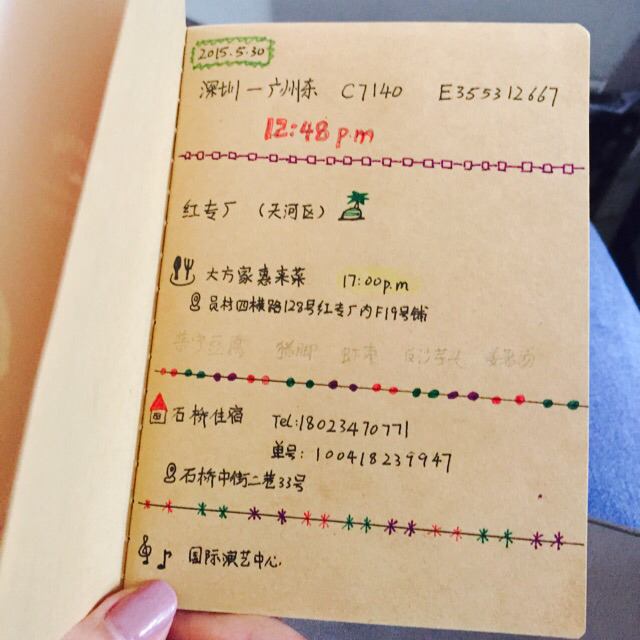 2015.5.30
深圳—广州东 C7140 E355312667
12:48 p.m
红专厂 (天河区)
大方家惠来菜 17:00p.m
员村四横路128号红专厂内F19号铺
猪脚
石桥住宿 Tel:18023470771
单号: 100418239947
石桥中街二巷33号
国际演艺中心.